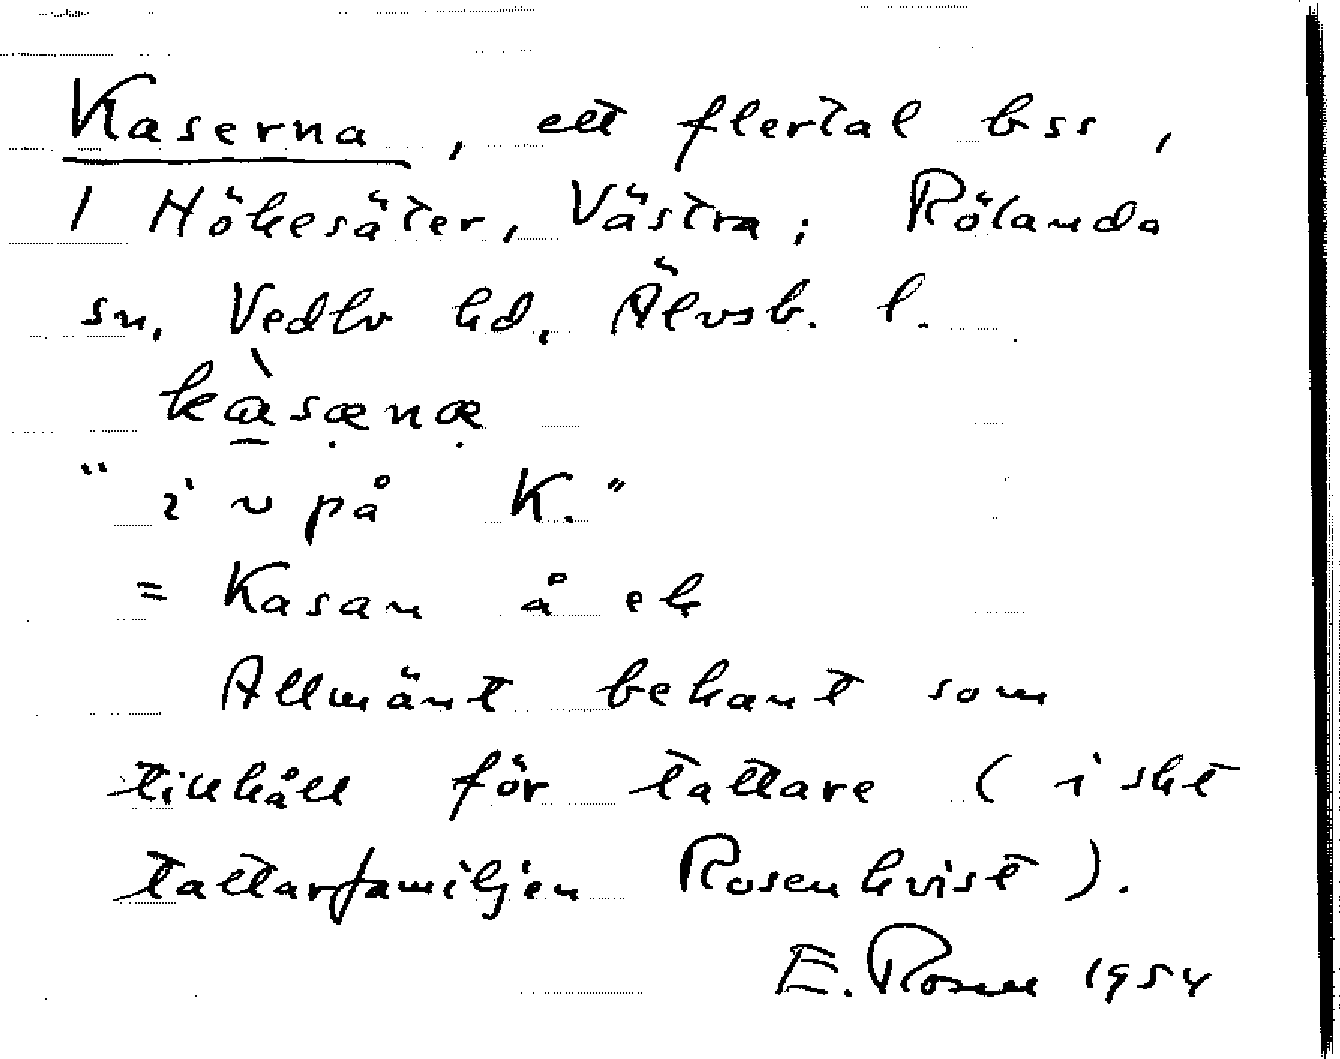 Kaserna, ett flertal bss,
1 Hökesäter, Västra; Rölanda
sn, Vedbo hd, Älvsb. l.
kàsænæ
"i ~ på K."
= Kasan å ek
Allmänt bekant som
tillhåll för tattare (i skt
tattarfamiljen Rosenkvist).
E. Rosell 1954